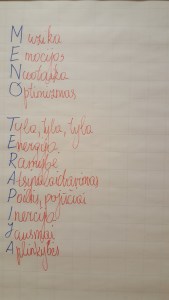 Muzika
Emocijos
Nuotaika
Optimizmas
Tyla, tyla, tyla
Energija
Ramybė
Atsipalaidavimas
Potyriai, pojūčiai
Inercija
Jausmai
Aplinkybės